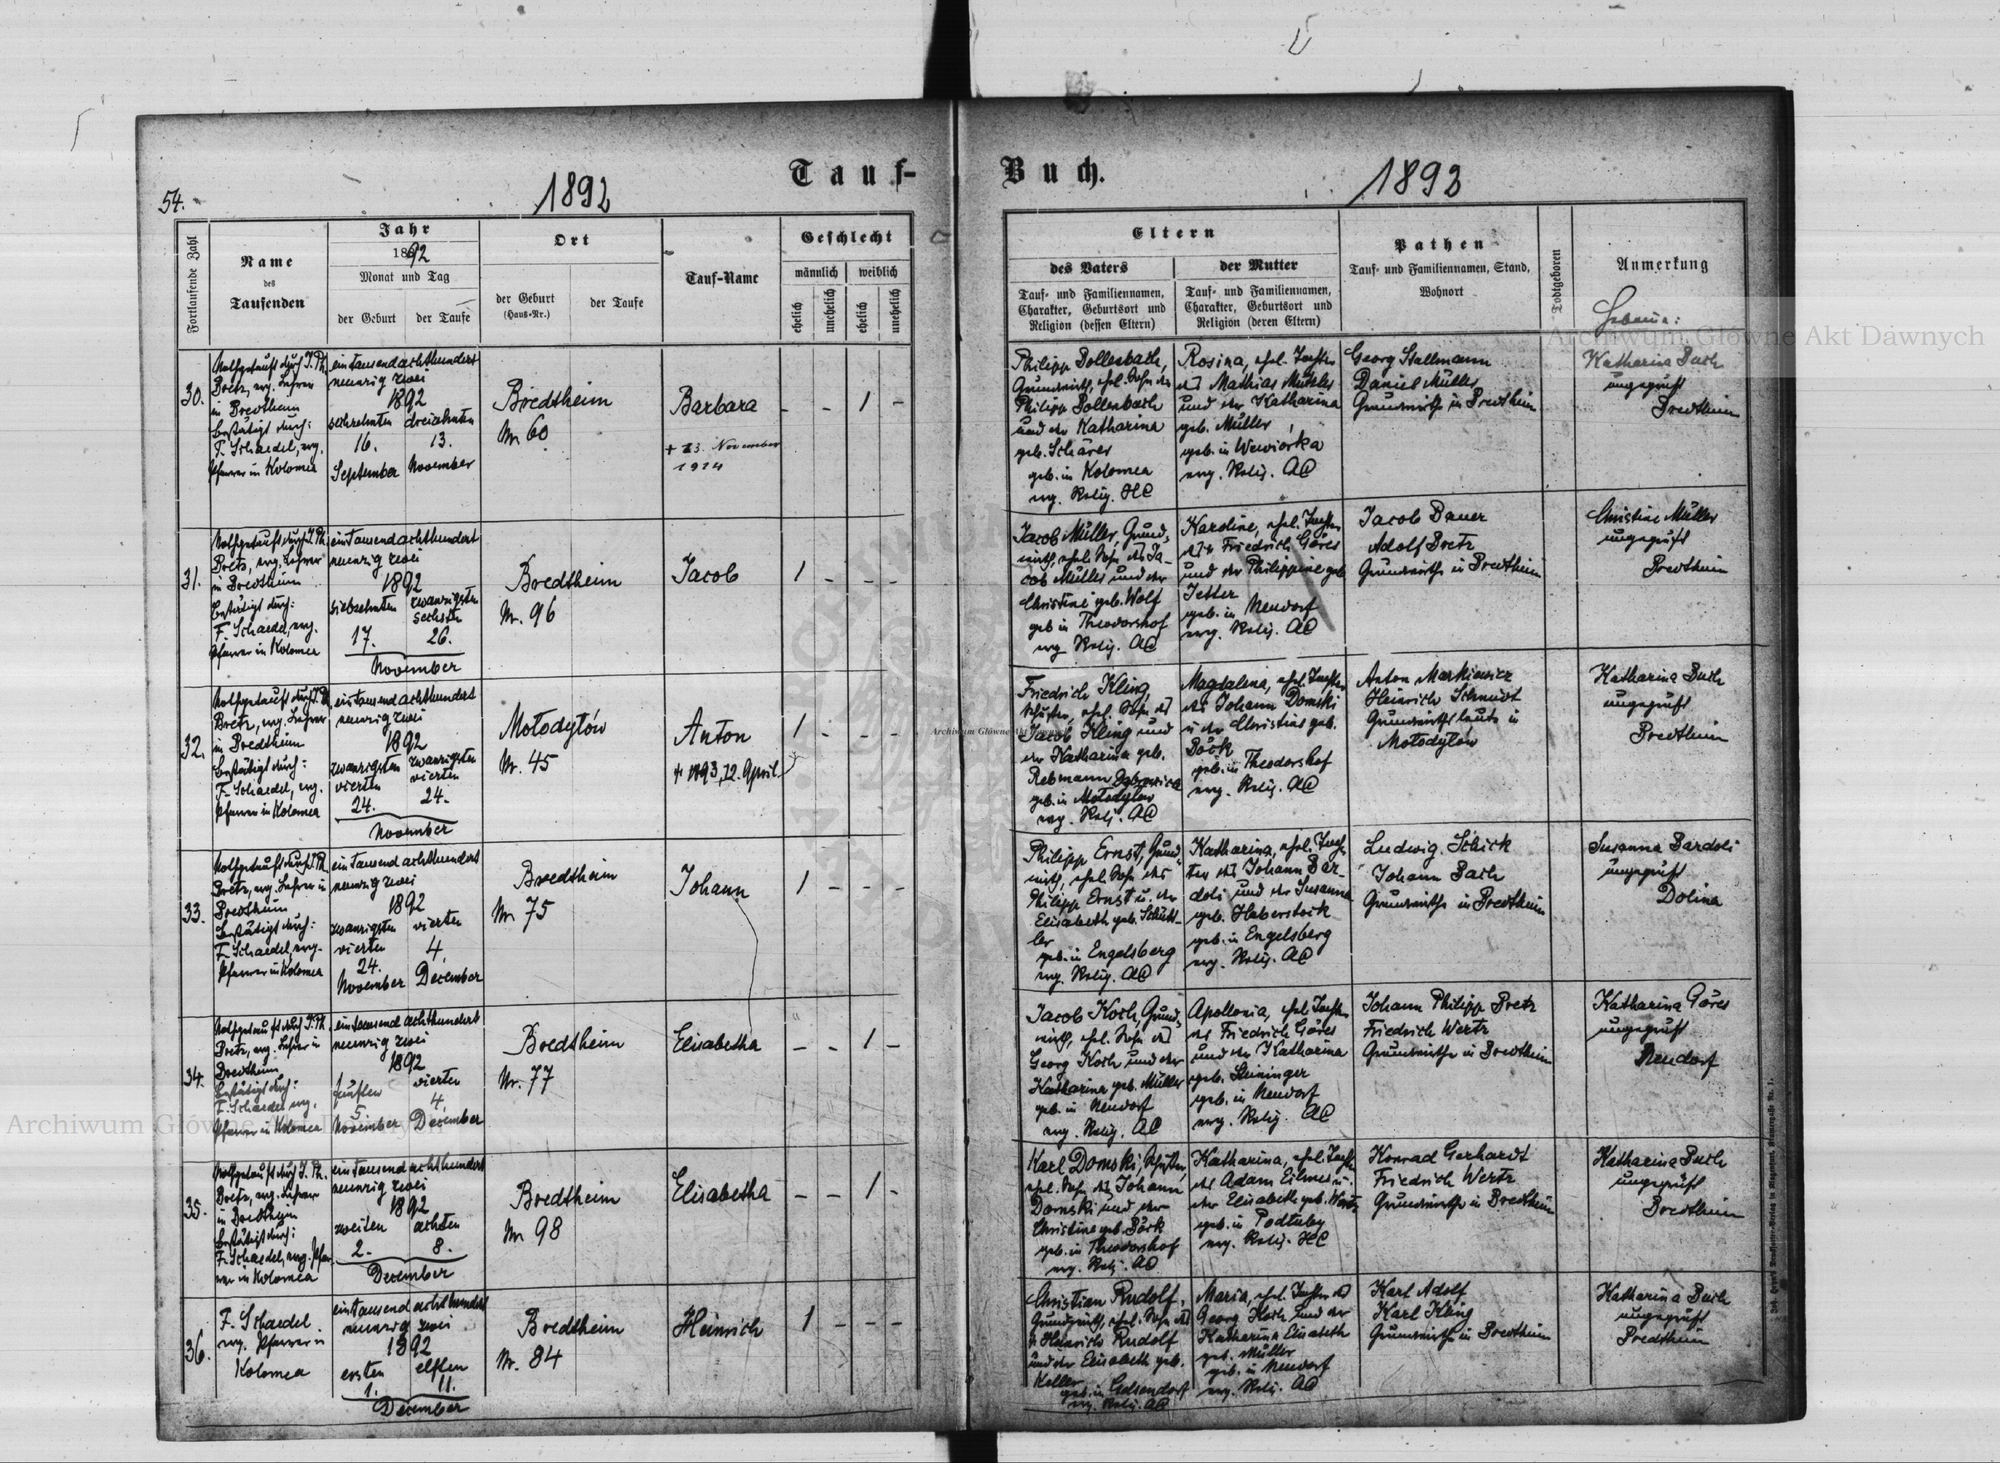 54.
1892
Tauf-
Fortlaufende Zahl
Name
des
Taufenden
Jahr
1892
Monat und Tag
der Geburt
der Taufe
Ort
der Geburt
(Haus-Nr.)
der Taufe
Tauf-Name
Geschlecht
männlich
weiblich
ehelich
unehelich
ehelich
unehelich
30.
Nothgetauft durch J. Ph.
Bretz, evg. Lehrer
in Bredtheim
bestätigt durch:
F. Schaedel, evg.
Pfarrer in Kolomea
eintausendachthundert
neunzig zwei
1892
sechzehnten
dreizehnten
16.
13.
September
November
Bredtheim
Nr. 60
Barbara
+ 23. November
1914
- - 1 -
31.
Nothgetauft durch J. Ph.
Bretz, evg. Lehrer
in Bredtheim
bestätigt durch:
F. Schaedel, evg.
Pfarrer in Kolomea
eintausendachthundert
neunzig zwei
1892
siebzehnten
zwanzigsten
sechsten
17.
26.
November
Bredtheim
Nr. 96
Jacob
1 - - -
32.
Nothgetauft durch J. Ph.
Bretz, evg. Lehrer
in Bredtheim
bestätigt durch:
F. Schaedel, evg.
Pfarrer in Kolomea
eintausendachthundert
neunzig zwei
1892
zwanzigsten
zwanzigsten
vierten
vierten
24.
24.
November
Mołodyłów
Nr. 45
Anton
+ 1893, 12. April
1 - - -
33.
Nothgetauft durch J. Ph.
Bretz, evg. Lehrer in
Bredtheim
bestätigt durch:
F. Schaedel, evg.
Pfarrer in Kolomea
eintausendachthundert
neunzig zwei
1892
zwanzigsten
vierten
vierten
4.
24.
November
December
Bredtheim
Nr. 75
Johann
1 - - -
34.
Nothgetauft durch J. Ph.
Bretz, evg. Lehrer in
Bredtheim
bestätigt durch:
F. Schaedel evg.
Pfarrer in Kolomea
eintausendachthundert
neunzig zwei
1892
fünften
vierten
5.
4.
November
December
Bredtheim
Nr. 77
Elisabetha
- - 1 -
35.
Nothgetauft durch J. Ph.
Bretz, evg. Lehrer
in Bredtheim
bestätigt durch:
F. Schaedel, evg. Pfar-
rer in Kolomea
eintausendachthundert
neunzig zwei
1892
zweiten
achten
2.
8.
December
Bredtheim
Nr. 98
Elisabetha
- - 1 -
36.
F. Schaedel
evg. Pfarrer in
Kolomea
eintausendachthundert
neunzig zwei
1892
ersten
elften
1.
11.
December
Bredtheim
Nr. 84
Heinrich
1 - - -
Buch.
1892
Eltern
des Vaters
Tauf- und Familiennamen,
Charakter, Geburtsort und
Religion (dessen Eltern)
der Mutter
Tauf- und Familiennamen,
Charakter, Geburtsort und
Religion (deren Eltern)
Pathen
Tauf- und Familiennamen, Stand,
Wohnort
Todtgeboren
Anmerkung
Hebame:
Philipp Bollenbach,
Grundwirth, ehel. Sohn des
Philipp Bollenbach
und der Katharina
geb. Schärer
geb. in Kolomea
evg. Relig. HC
Rosina, ehel. Tochter
des Mathias Mützler
und der Katharina
geb. Müller
geb. in Wewiorka
evg. Relig. AC
Georg Stallmann
Daniel Müller
Grundwirthe in Bredtheim
Katharina Bach
ungeprüft
Bredtheim
Jacob Müller, Grund-
wirth, ehel. Sohn des Ja-
cob Müller und der
Christine geb. Wolf
geb in Theodorshof
evg Relig. AC
Karoline, ehel. Tochter
des Friedrich Göres
und der Philippine geb
Jetter
geb. in Neudorf
evg. Relig. AC
Jacob Bauer
Adolf Bretz
Grundwirthe in Bredtheim
Christine Müller
ungeprüft
Bredtheim
Friedrich Kling,
Schuster, ehel. Sohn des
Jacob Kling und
der Katharina geb.
Rebmann
geb. in Mołodyłów
evg. Relig. AC
Magdalena, ehel. Tochter
des Johann Domski
u. der Christine geb.
Böck
geb. in Theodorshof
evg. Relig. AC
Anton Markiewicz
Heinrich Schmidt
Grundwirthsleute in
Mołodyłów
Katharina Bach
ungeprüft
Bredtheim
Philipp Ernst, Grund-
wirth, ehel. Sohn des
Philipp Ernst u. der
Elisabeth geb. Schütt-
ler
geb. in Engelsberg
evg. Relig. AC
Katharina, ehel. Toch-
ter des Johann Bar-
doli und der Susanna
geb. Haberstock
geb. in Engelsberg
evg. Relig. AC
Ludwig Schick
Johann Bach
Grundwirthe in Bredtheim
Susanna Bardoli
ungeprüft
Dolina
Jacob Koch, Grund-
wirth, ehel. Sohn des
Georg Koch und der
Katharina geb. Müller
geb. in Neudorf
evg. Relig. AC
Apollonia, ehel Tochter
des Friedrich Göres
und der Katharina
geb. Steininger
geb. in Neudorf
evg. Relig. AC
Johann Philipp Bretz
Friedrich Wertz
Grundwirthe in Bredtheim
Katharina Göres
ungeprüft
Neudorf
Karl Domski, Schuster,
ehel. Sohn des Johann
Domski und der
Christine geb. Böck
geb. in Theodorshof
evg. Relig. AC
Katharina, ehel. Tochter
des Adam Eilmes u.
der Elisabeth geb. Wertz
geb. in Podtuby
evg. Relig. HC
Konrad Gerhardt
Friedrich Wertz
Grundwirthe in Bredtheim
Katharina Bach
ungeprüft
Bredtheim
Christian Rudolf,
Grundwirth, ehel. Sohn des
Heinrich Rudolf
und der Elisabeth geb.
Keller
geb. in Gelsendorf
evg. Relig. AC
Maria, ehel. Tochter des
Georg Koch und der
Katharina Elisabeth
geb. Müller
geb. in Neudorf
evg. Relig. AC
Karl Adolf
Karl Kling
Grundwirthe in Bredtheim
Katharina Bach
ungeprüft
Bredtheim
Archiwum Główne Akt Dawnych
Archiwum Główne Akt Dawnych
Archiwum Główne Akt Dawnych